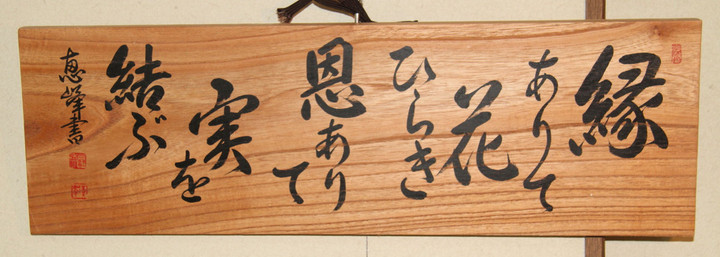 縁
ありて
花
ひらき
恩あり
て
実
を
結ぶ
恵峰書